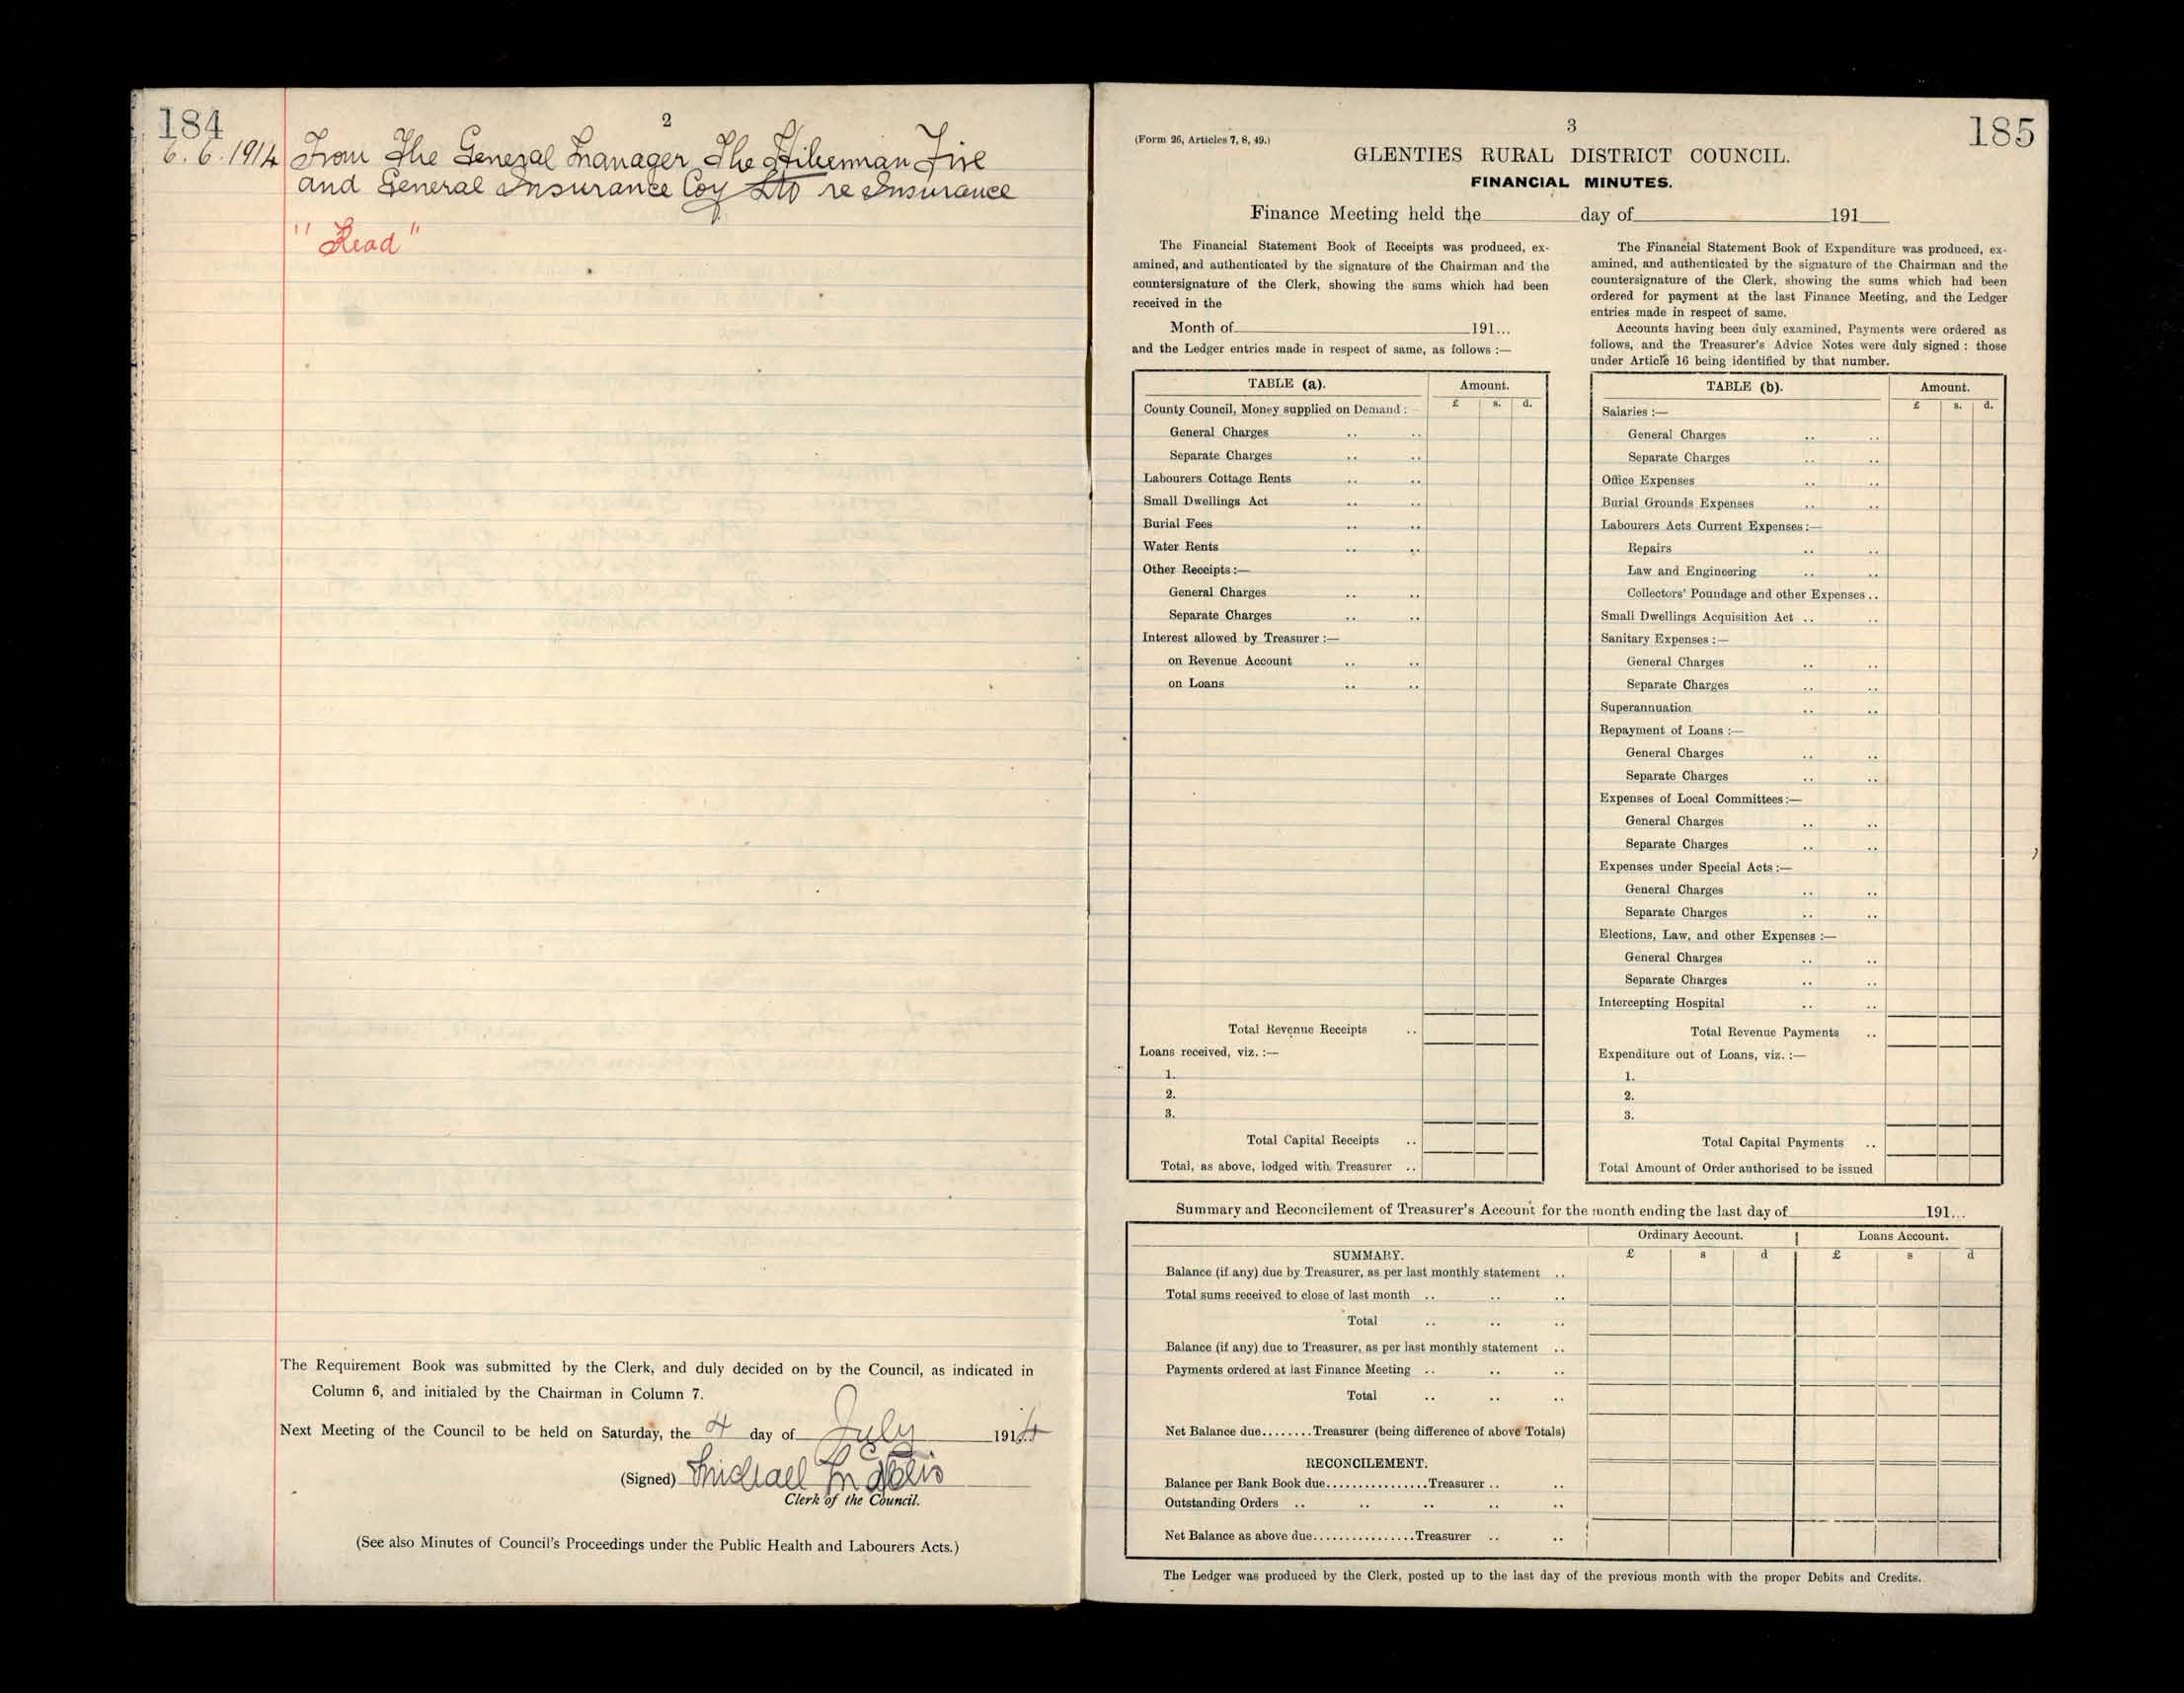 184
2
6.6.1914 From The General Manager The Hibernian Fire
and General Insurance Coy Ltd re Insurance
"Read"
The Requirement Book was submitted by the Clerk, and duly decided on by the Council, as indicated in
Column 6, and initialed by the Chairman in Column 7.
Next Meeting of the Council to be held on Saturday, the 4 day of July 1914
(Signed) Michael
Clerk of the Council.
(See also Minutes of Council's Proceedings under the Public Health and Labourers Acts.)
3
185
(Form 26, Articles 7, 8, 49.)
GLENTIES RURAL DISTRICT COUNCIL.
FINANCIAL MINUTES.
Finance Meeting held the day of 191
The Financial Statement Book of Receipts was produced, ex-
amined, and authenticated by the signature of the Chairman and the
countersignature of the Clerk, showing the sums which had been
received in the
Month of 191...
and the Ledger entries made in respect of same, as follows :—
TABLE (a). Amount.
£ s. d.
County Council, Money supplied on Demand :
General Charges .. ..
Separate Charges .. ..
Labourers Cottage Rents .. ..
Small Dwellings Act .. ..
Burial Fees .. ..
Water Rents .. ..
Other Receipts :—
General Charges .. ..
Separate Charges .. ..
Interest allowed by Treasurer :—
on Revenue Account .. ..
on Loans .. ..
Total Revenue Receipts ..
Loans received, viz. :—
1.
2.
3.
Total Capital Receipts ..
Total, as above, lodged with Treasurer ..
The Financial Statement Book of Expenditure was produced, ex-
amined, and authenticated by the signature of the Chairman and the
countersignature of the Clerk, showing the sums which had been
ordered for payment at the last Finance Meeting, and the Ledger
entries made in respect of same.
Accounts having been duly examined, Payments were ordered as
follows, and the Treasurer's Advice Notes were duly signed : those
under Article 16 being identified by that number.
TABLE (b). Amount.
£ s. d.
Salaries :—
General Charges .. ..
Separate Charges .. ..
Office Expenses .. ..
Burial Grounds Expenses .. ..
Labourers Acts Current Expenses :—
Repairs .. ..
Law and Engineering .. ..
Collectors' Poundage and other Expenses ..
Small Dwellings Acquisition Act .. ..
Sanitary Expenses :—
General Charges .. ..
Separate Charges .. ..
Superannuation .. ..
Repayment of Loans :—
General Charges .. ..
Separate Charges .. ..
Expenses of Local Committees :—
General Charges .. ..
Separate Charges .. ..
Expenses under Special Acts :—
General Charges .. ..
Separate Charges .. ..
Elections, Law, and other Expenses :—
General Charges .. ..
Separate Charges .. ..
Intercepting Hospital .. ..
Total Revenue Payments ..
Expenditure out of Loans, viz. :—
1.
2.
3.
Total Capital Payments ..
Total Amount of Order authorised to be issued
Summary and Reconcilement of Treasurer's Account for the month ending the last day of 191...
Ordinary Account. Loans Account.
SUMMARY. £ s d £ s d
Balance (if any) due by Treasurer, as per last monthly statement ..
Total sums received to close of last month .. .. ..
Total .. .. ..
Balance (if any) due to Treasurer, as per last monthly statement ..
Payments ordered at last Finance Meeting .. .. ..
Total .. .. ..
Net Balance due........Treasurer (being difference of above Totals)
RECONCILEMENT.
Balance per Bank Book due................Treasurer .. ..
Outstanding Orders .. .. .. .. ..
Net Balance as above due................Treasurer .. ..
The Ledger was produced by the Clerk, posted up to the last day of the previous month with the proper Debits and Credits.